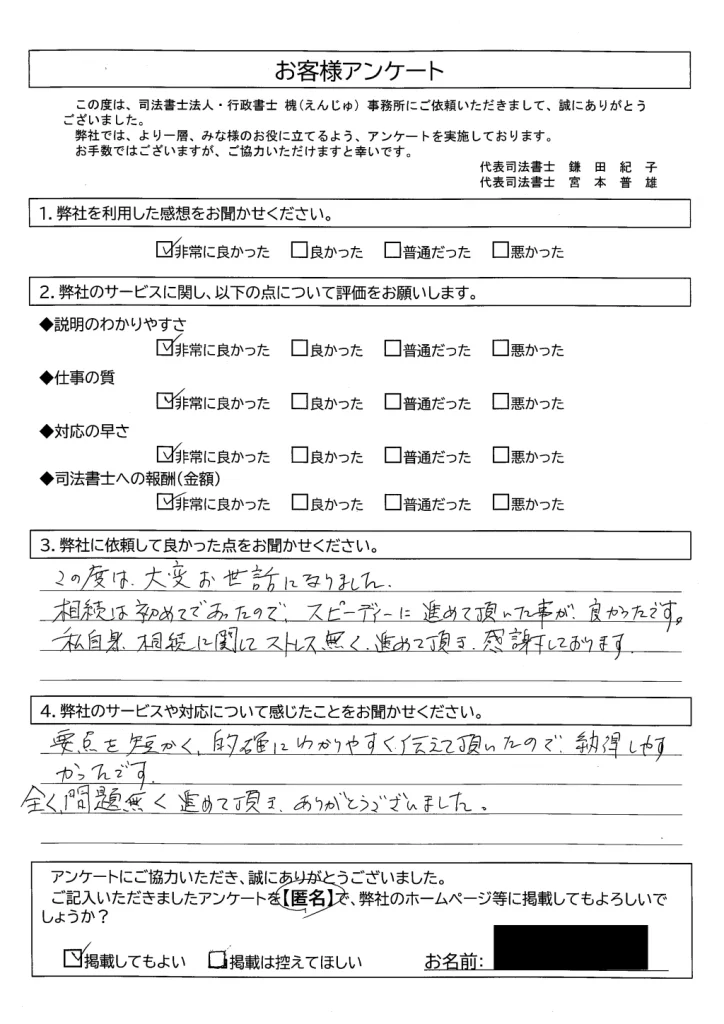 お客様アンケート
この度は、司法書士法人・行政書士 槐(えんじゅ) 事務所にご依頼いただきまして、誠にありがとう
ございました。
弊社では、より一層、みな様のお役に立てるよう、アンケートを実施しております。
お手数ではございますが、ご協力いただけますと幸いです。
代表司法書士 鎌 田 紀 子
代表司法書士 宮 本 普 雄
1. 弊社を利用した感想をお聞かせください。
☑非常に良かった □良かった □普通だった □悪かった
2. 弊社のサービスに関し、以下の点について評価をお願いします。
◆説明のわかりやすさ
☑非常に良かった □良かった □普通だった □悪かった
◆仕事の質
☑非常に良かった □良かった □普通だった □悪かった
◆対応の早さ
☑非常に良かった □良かった □普通だった □悪かった
◆司法書士への報酬(金額)
☑非常に良かった □良かった □普通だった □悪かった
3. 弊社に依頼して良かった点をお聞かせください。
この度は、大変お世話になりました.
相続は初めてであったので、スピーディーに進めて頂いた事が、良かったです。
私自身、相続に関してストレス無く、進めて頂き、感謝しております.
4. 弊社のサービスや対応について感じたことをお聞かせください。
要点を短かく、的確にわかりやすく伝えて頂いたので、納得しやす
かったです.
全く問題無く進めて頂き、ありがとうございました。
アンケートにご協力いただき、誠にありがとうございました。
ご記入いただきましたアンケートを【匿名】で、弊社のホームページ等に掲載してもよろしいで
しょうか？
☑掲載してもよい □掲載は控えてほしい お名前: